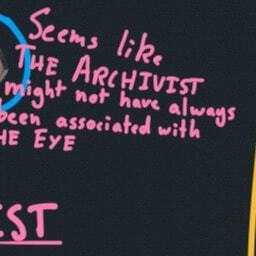 Seems like
THE ARCHIVIST
might not have always
been associated with
HE EYE
IST